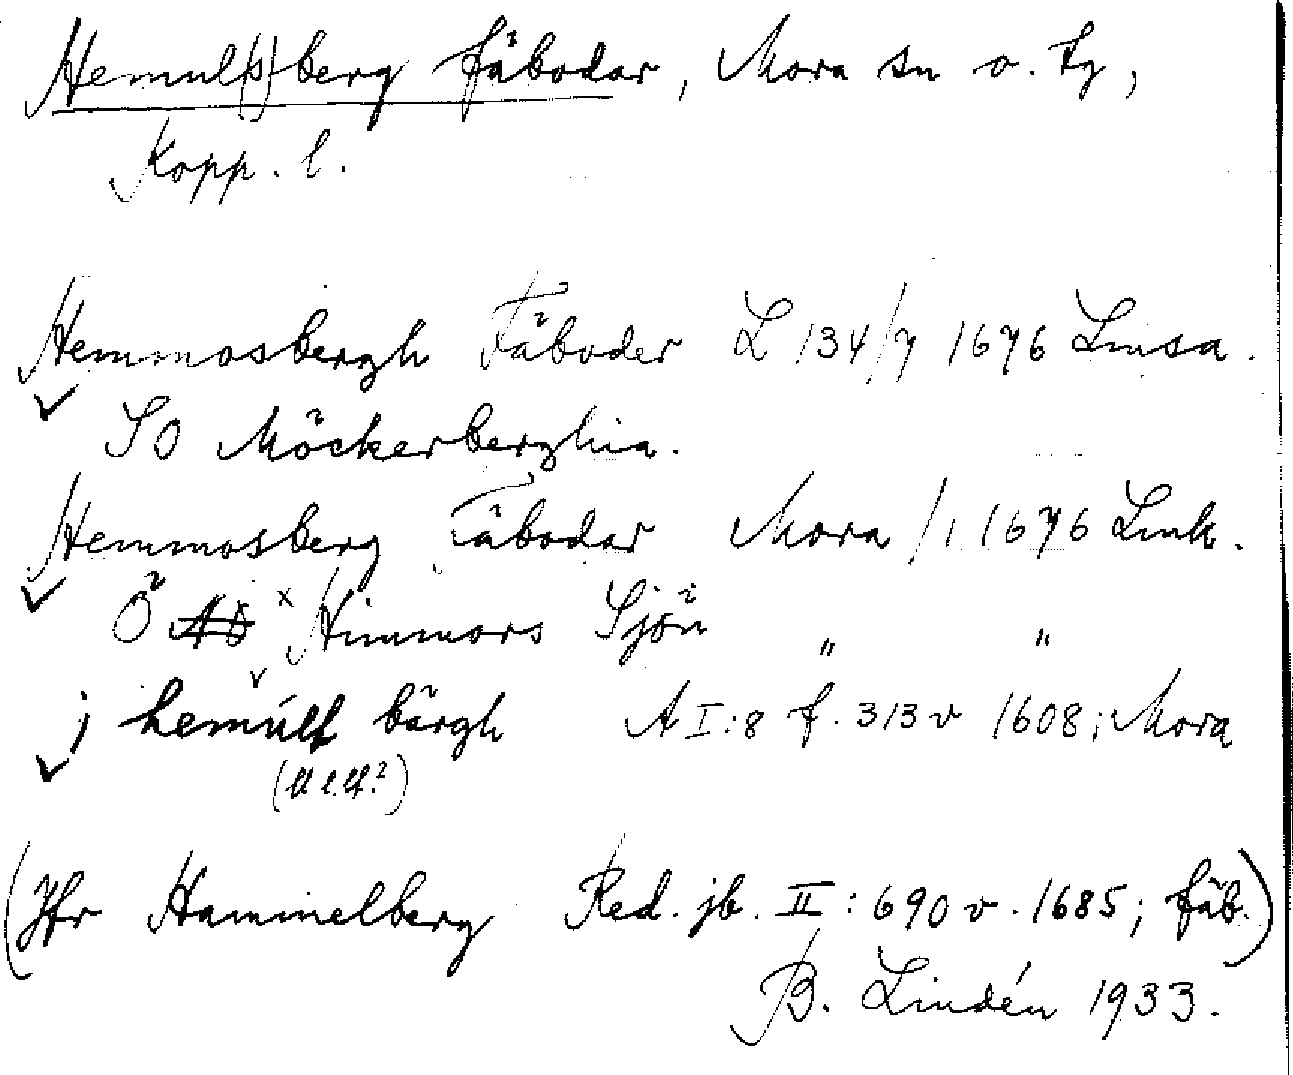 Hemul(s)berg fäbodar, Mora sn o. tg,
Kopp. l.
Hemmosbergh Fäboder L 134/7 1676 Lmsa.
SO Möckerberghia.
Hemmosberg Fäbodar Mora /1 1676 Lmk.
Ö x Himmors Sjön " "
j hemúlf bärgh A I:8 f. 313 v 1608; Mora
(Jfr Hammelberg Red. jb. II: 690 v. 1685; fäb.)
B. Lindén 1933.